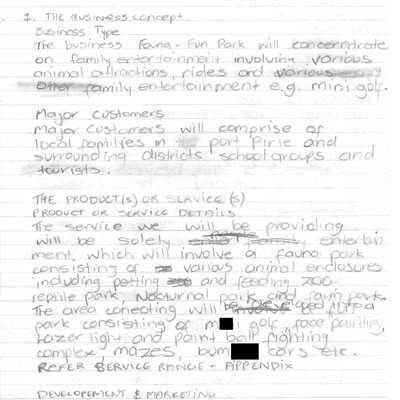 1. THE BUSINESS CONCEPT
Business Type
The business Fauna-Fun Park will concerntrate
on family entertainment involving various
animal attractions, rides and various
other family entertainment e.g. mini golf.
Major Customers
Major Customers will comprise of
local families in port Pirie and
surrounding districts school groups and
tourists.
THE PRODUCT(S) OR SERVICE(S)
PRODUCT OR SERVICE DETAILS
The service we will be providing
will be solely family entertain
ment. which will involve a fauna park
consisting of various animal enclosures
including petting and feeding zoo
reptile park, Nocturnal park and farm park.
The area will be developed into a
park consisting of m golf, face painting,
Lazer light and paint ball fighting
complex, mazes, bum cars etc.
REFER SERVICE RANGE - APPENDIX
DEVELOPEMENT & MARKETING